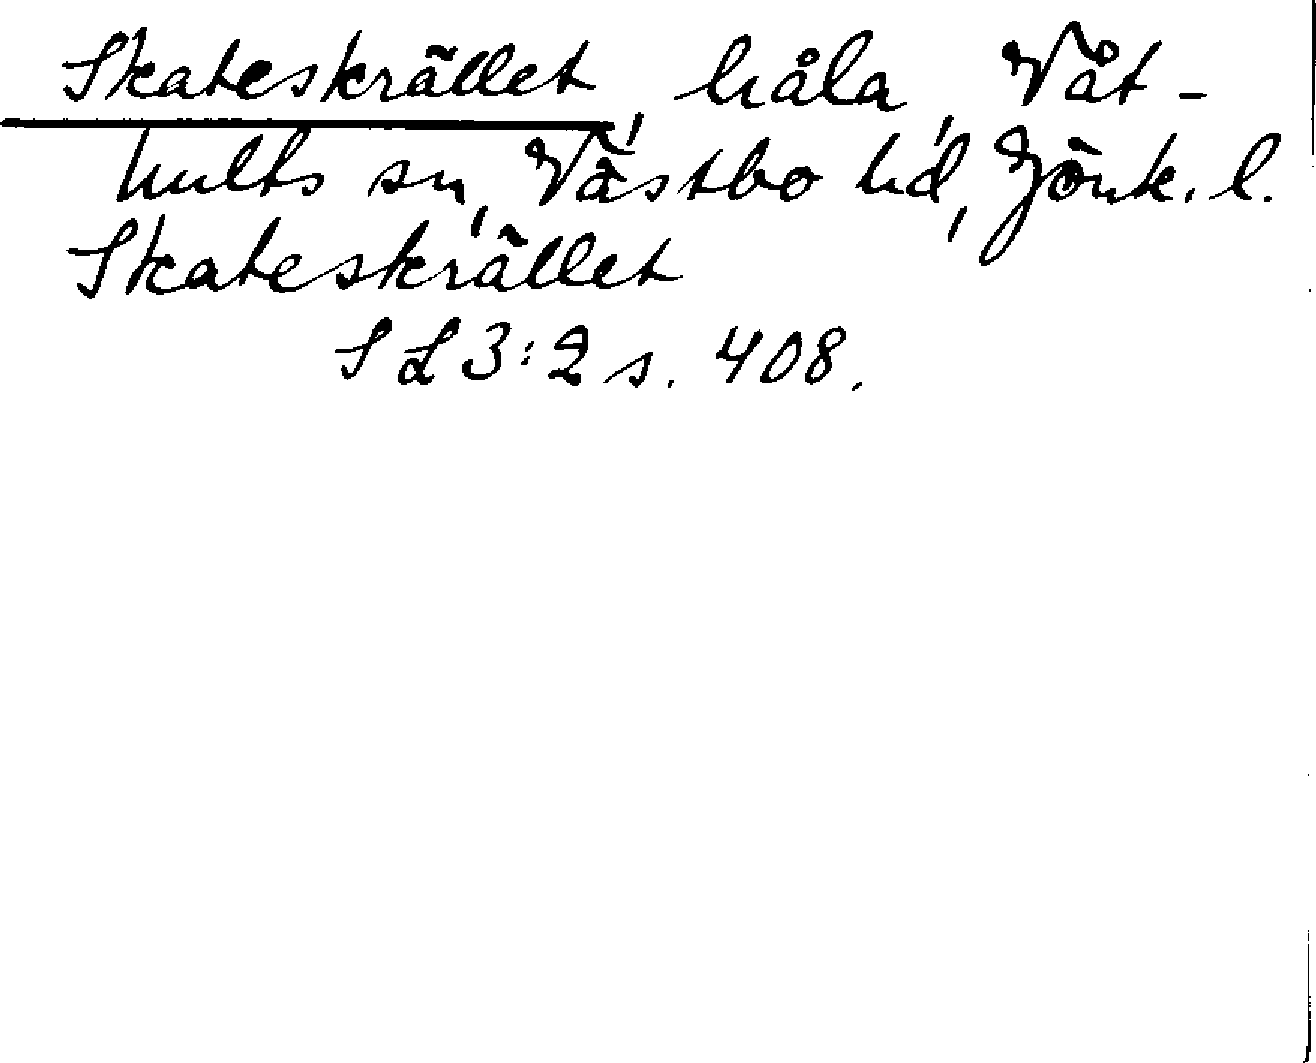 Skateskrället, håla, Våt-
hults sn, Västbo hd, Jönk. l.
Skateskrället
SL 3:2 s. 408.